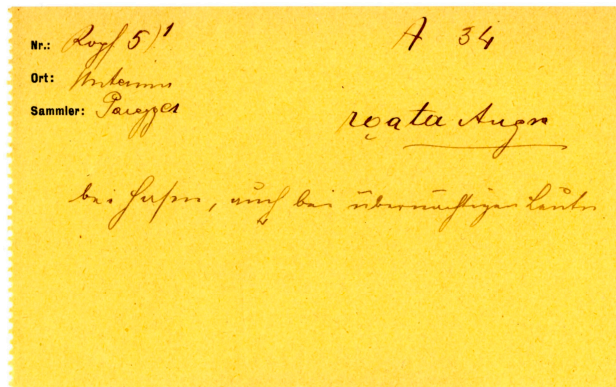 Nr.: Kopf 5)¹
A 34
Ort: Unterinn
Sammler:
rǫata Augn
bei Hasen, auch bei übernächtigen Leuten